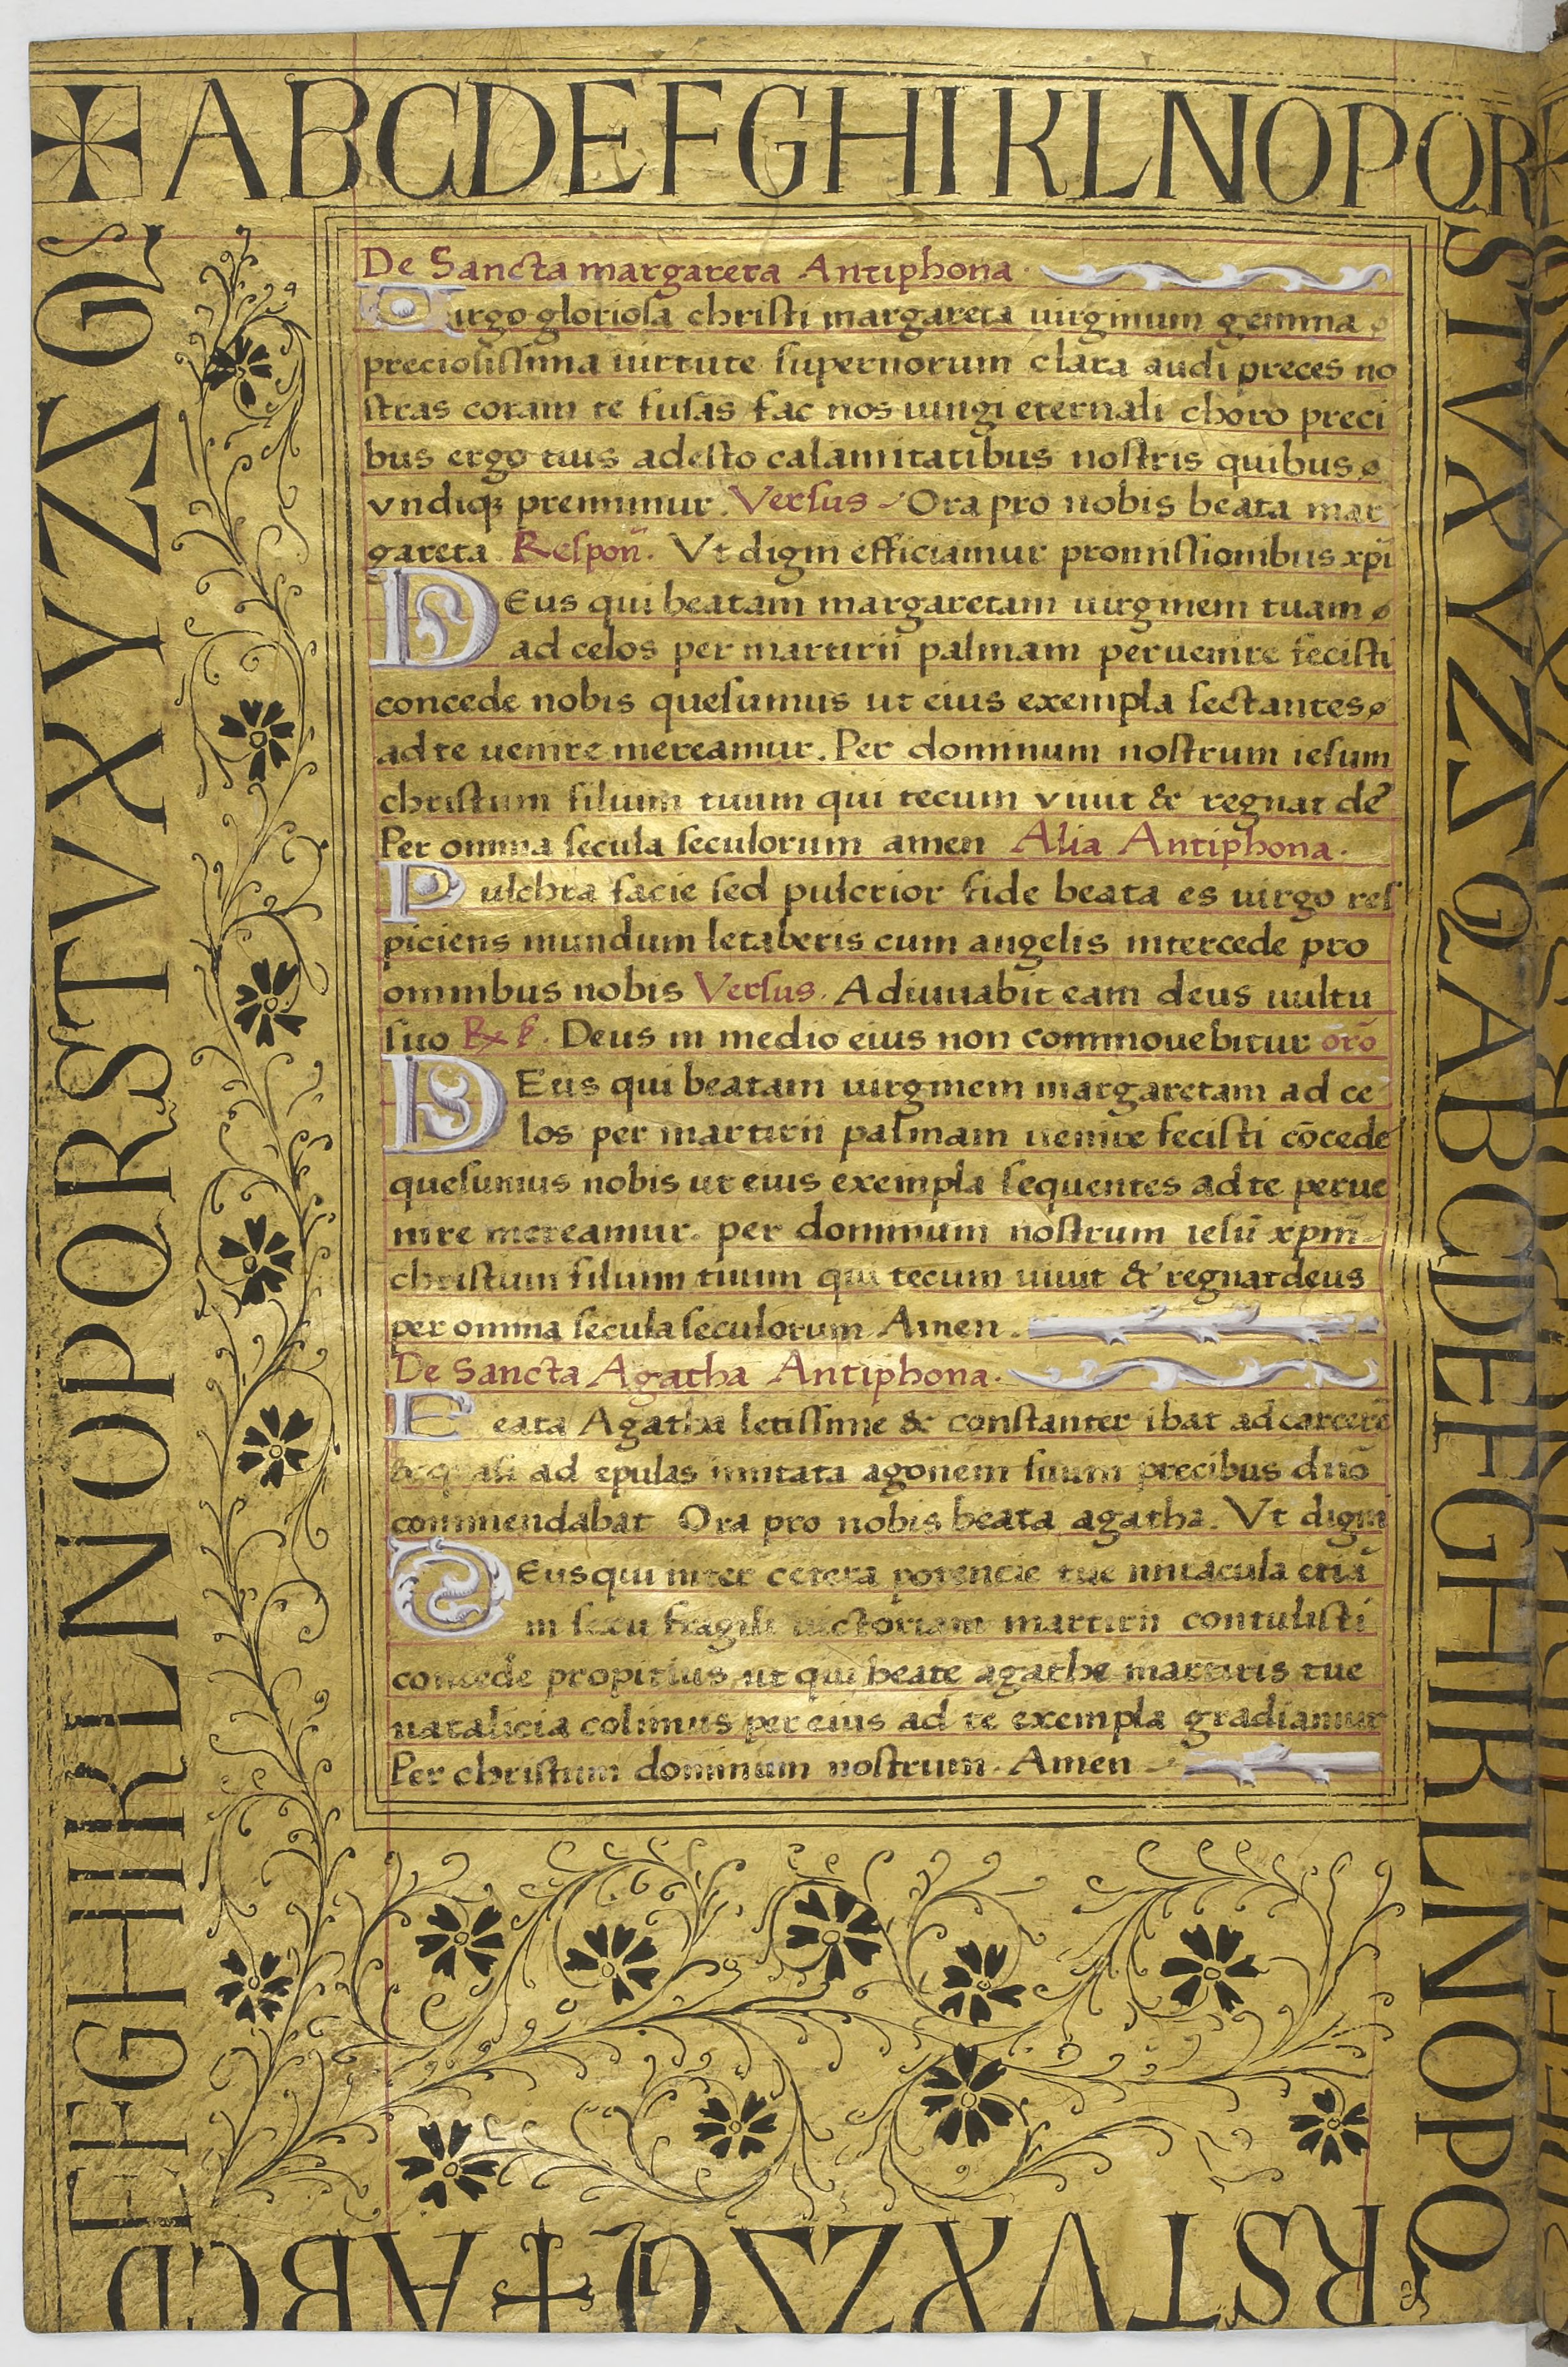 ABCDEFGHIKLNOPQR
STVXYZQABCDEFGHIKLNOPQ
RSTVXYZQ+ABCD
EFGHIKLNOPQRSTVXYZQ
De Sancta margareta Antiphona
irgo gloriosa christi margareta uirginum gemma
preciosissima uirtute supernorum clara audi preces no
stras coram te fusas fac nos iungi eternali choro preci
bus ergo tuis adesto calamitatibus nostris quibus
vndiqꝫ premimur. Versus Ora pro nobis beata mar
gareta Respoñ. Vt digni efficiamur promissionibus xp̄i
DEus qui beatam margaretam uirginem tuam
ad celos per martirii palmam peruenire fecisti
concede nobis quesumus ut eius exempla sectantes
ad te uenire mereamur. Per dominum nostrum iesum
christum filium tuum qui tecum viuit & regnat de
Per omnia secula seculorum amen Alia Antiphona.
Pulchra facie sed pulcrior fide beata es uirgo res
piciens mundum letaberis cum angelis intercede pro
omnibus nobis Versus. Adiuuabit eam deus uultu
suo Deus in medio eius non commouebitur oro
DEus qui beatam uirginem margaretam ad ce
los per martirii palmam uenire fecisti cōcede
quesumus nobis ut eius exempla sequentes ad te perue
nire mereamur. per dominum nostrum iesū xpm
christum filium tuum qui tecum uiuit & regnat deus
per omnia secula seculorum Amen.
De Sancta Agatha Antiphona.
eata Agatha letissime & constanter ibat ad carcerē
& quasi ad epulas inuitata agonem suum precibus dnō
commendabat Ora pro nobis beata agatha. Vt digni
DEus qui inter cetera potencie tue miracula etiā
in sexu fragili uictoriam martirii contulisti
concede propitius ut qui beate agathe martiris tue
natalicia colimus per eius ad te exempla gradiamur
Per christum dominum nostrum. Amen